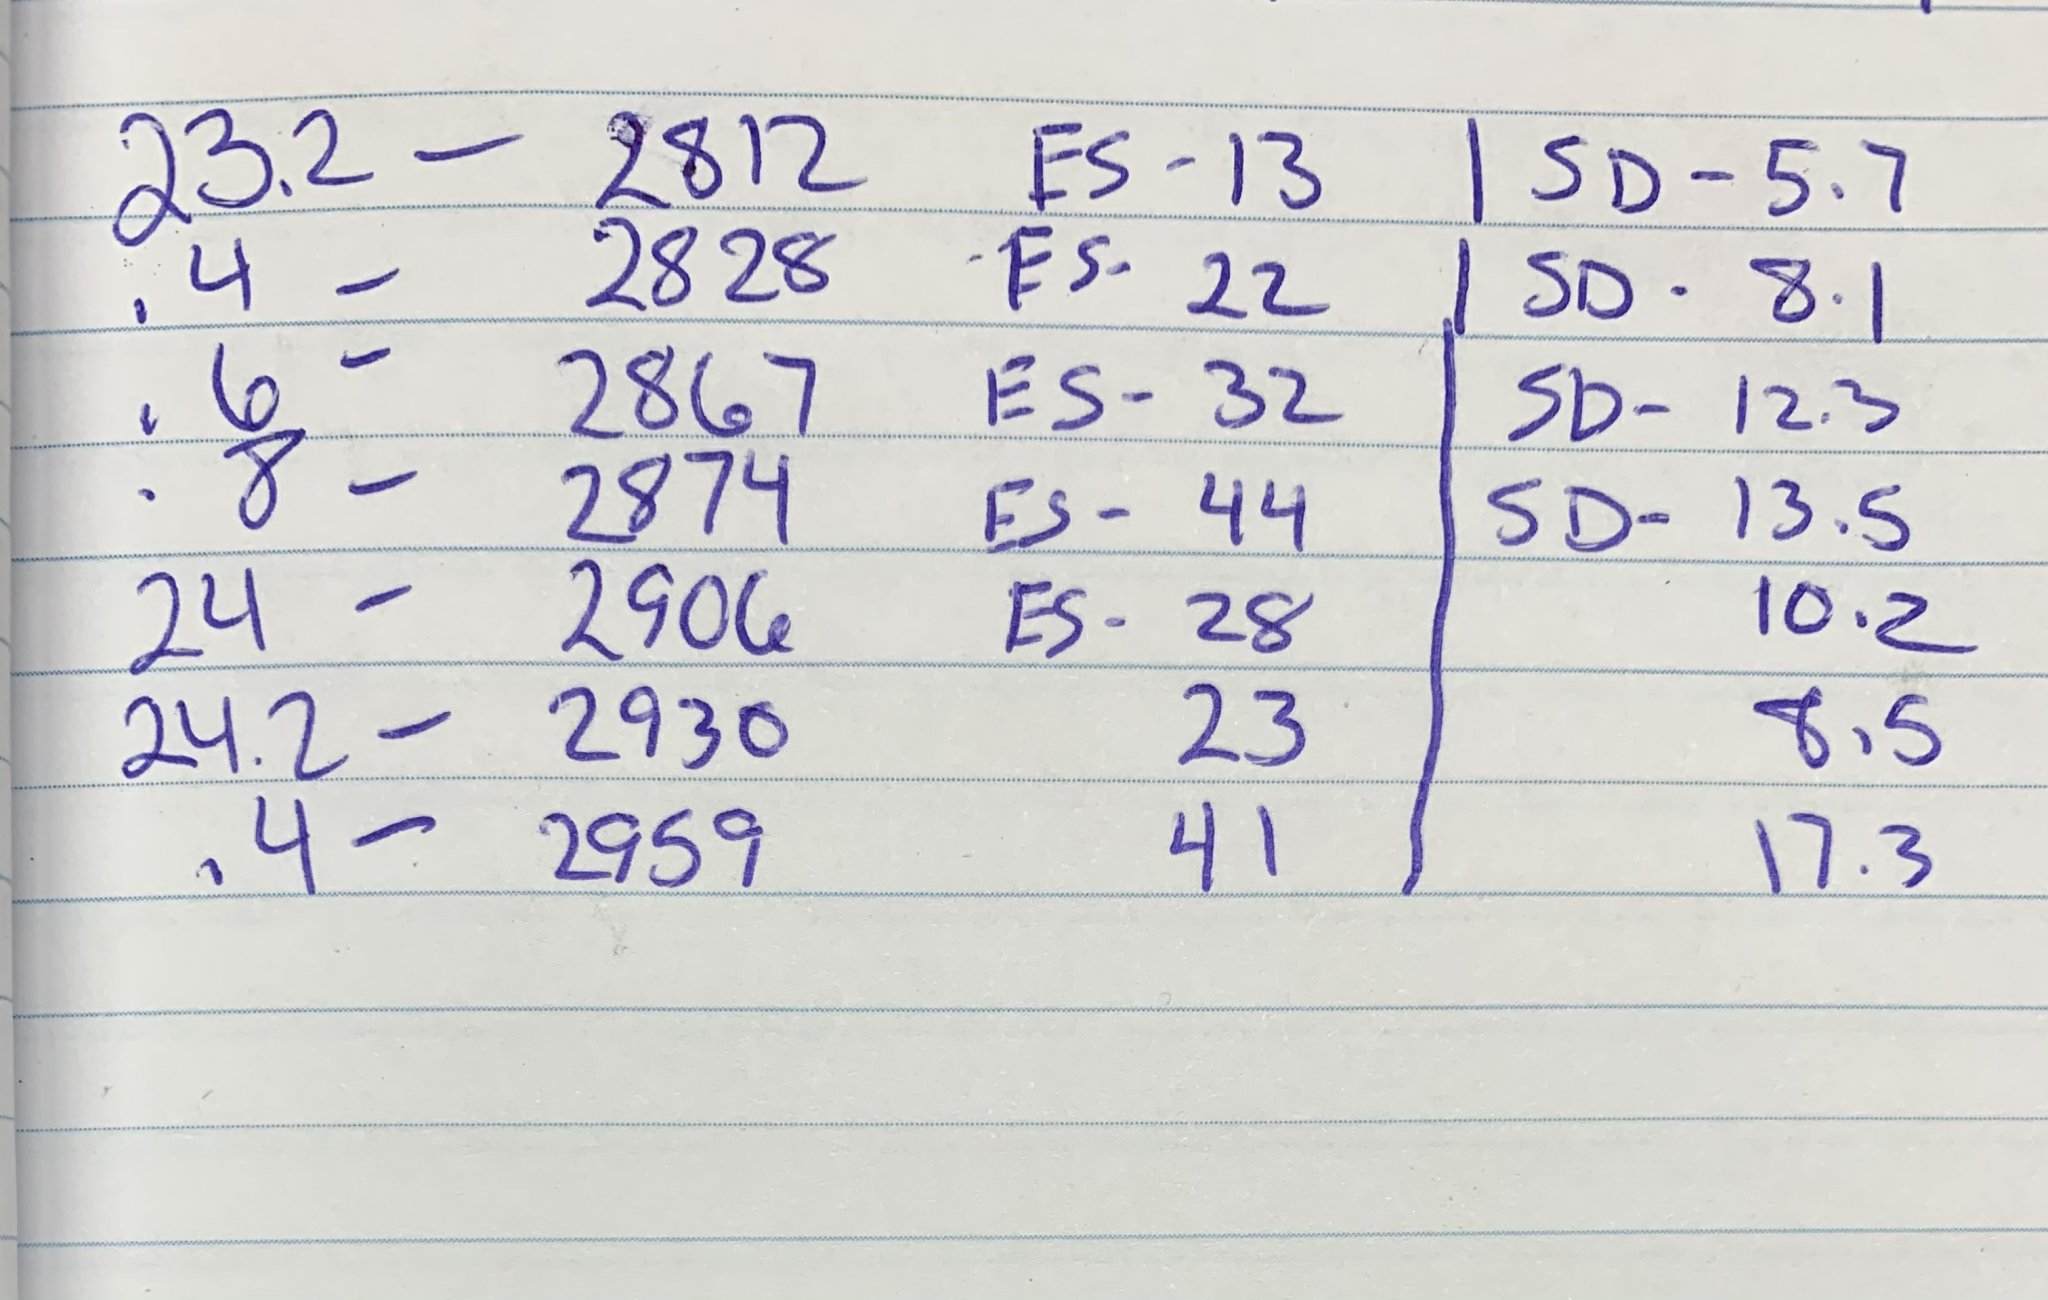 23.2 - 2812 ES - 13 | SD - 5.7
.4 - 2828 - ES - 22 | SD - 8.1
.6 - 2867 ES - 32 | SD - 12.3
.8 - 2874 ES - 44 | SD - 13.5
24 - 2906 ES - 28 | 10.2
24.2 - 2930 23 | 8.5
.4 - 2959 41 | 17.3